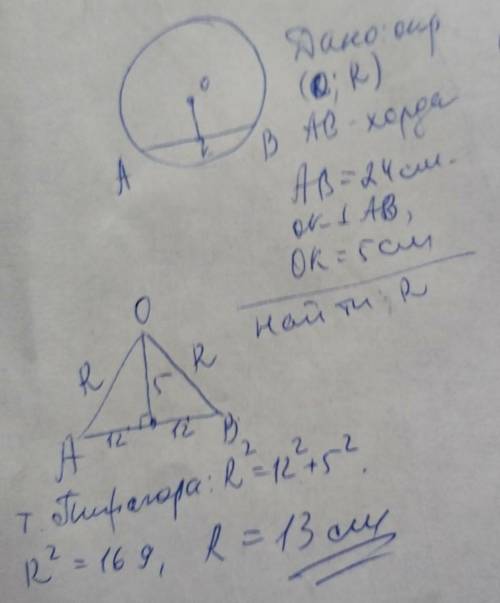 O
A
B
Дано: окр
(O; R)
AB - хорда
AB = 24 см.
OK ⊥ AB,
OK = 5 см
Найти: R
O
R
R
5
A
12
12
B
т. Пифагора: R² = 12² + 5².
R² = 169, R = 13 см